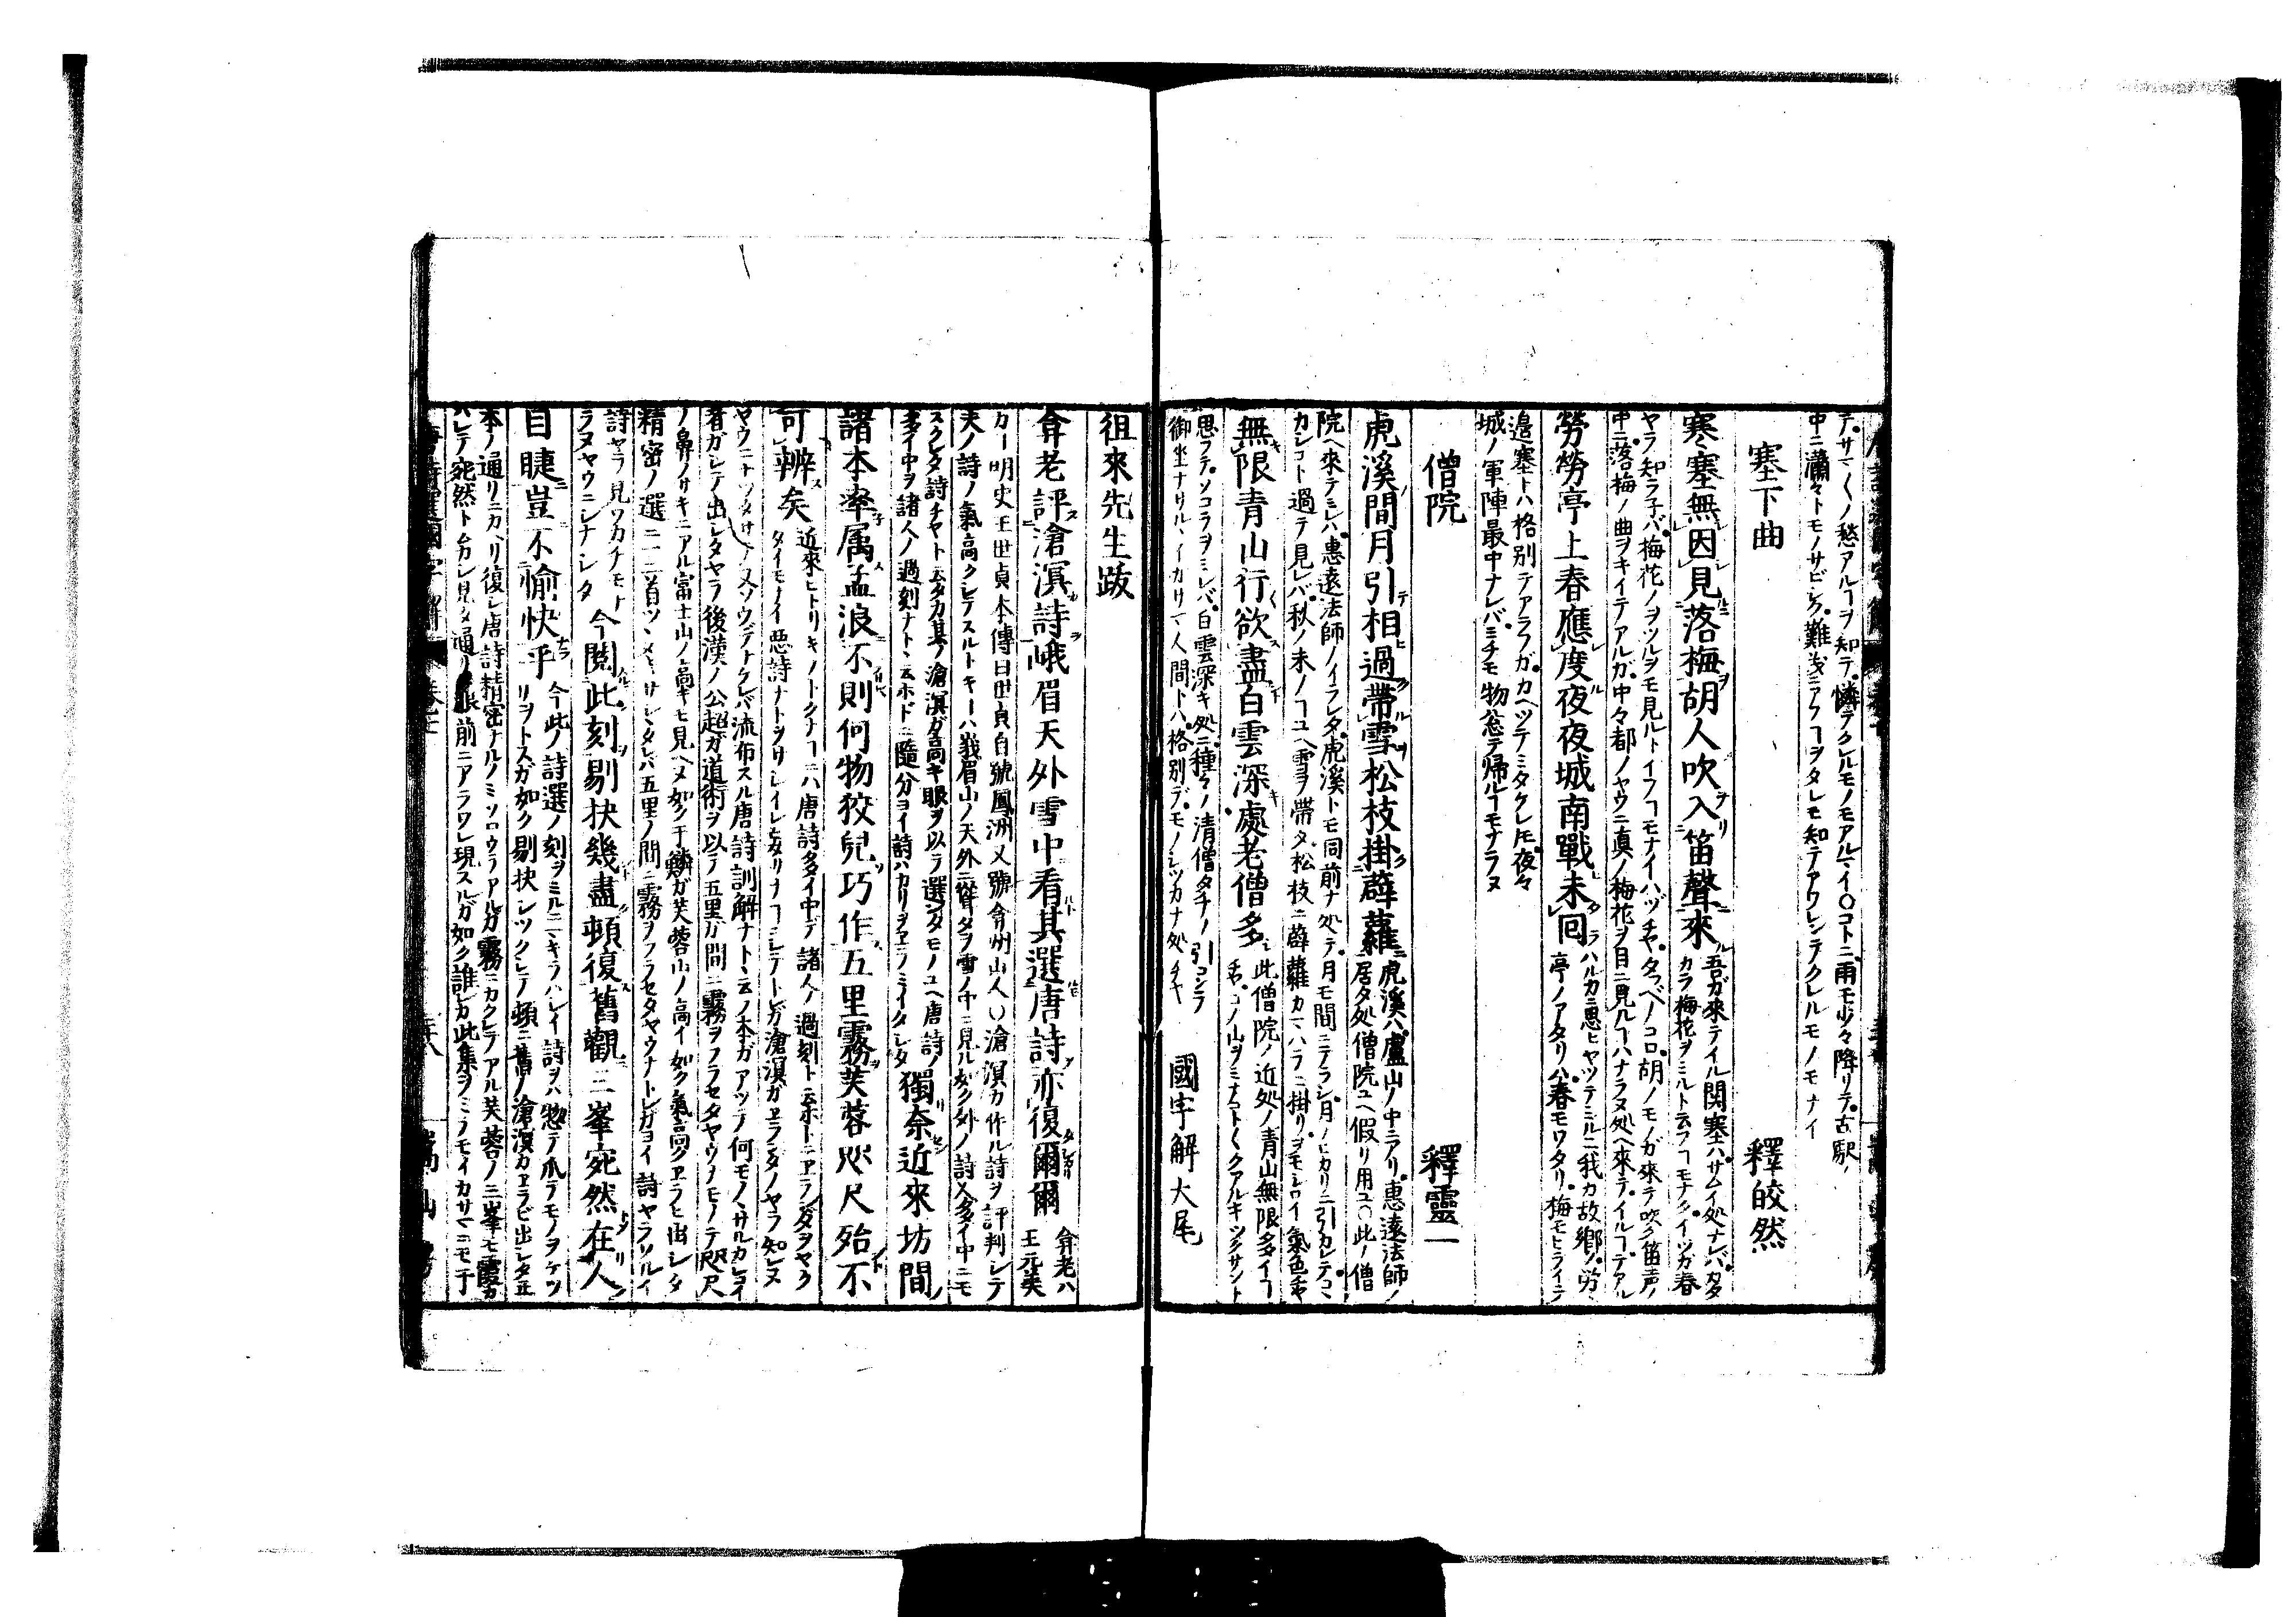 テサマ〱ノ愁アルヿヲ知テ憐テクレルモノモアルマイ〇コトニ雨モ少々降リテ古駅ノ
中ニ瀟々トモノサビシク難儀ニアフヿヲタレモ知テアワレンテクレルモノモナイ
塞下曲 釋皎然
寒塞無因見落梅胡人吹入笛聲來
吾ガ來テイル関塞ハサムイ処ナレバカタ
カラ梅花ヲミルト云フヿモナクイツガ春
ヤラ知ラ子バ梅花ノヲツルヲモ見ルトイフヿモナイハヅヂヤタマ〱コノコロ胡ノモノガ來テ吹ク笛声ノ
中ニ落梅ノ曲ヲキイテアルガ中々都ノヤウニ真ノ梅花ヲ目ニ見ルヿハナラヌ処ヘ來テイルヿデアル
勞勞亭上春應度夜夜城南戰未回
ハルカニ思ヒヤツテミルニ我カ故郷ノ労々
亭ノアタリハ春モワタリ梅モヒライテ
邉塞トハ格別テアラフガカヘツテミタクレモ夜々
城ノ軍陣最中ナレバミチモ物忩テ帰ルヿモナラヌ
僧院 釋靈一
虎溪間月引相過帶雪松枝掛薜蘿
虎溪ハ盧山ノ中ニアリ惠遠法師ノ
居タ処僧院ユヘ假リ用ユ〇此ノ僧
院ヘ來テミレハ惠遠法師ノイラレタ虎溪トモ同前ナ処テ月モ間ニテラシ月ノヒカリニ引カレテコマ
カレコト過テ見レバ秋ノ末ノヿユヘ雪ヲ帶タ松枝ニ薜蘿カマハラニ掛リヲモシロイ氣色チヤ
無限青山行欲盡白雲深處老僧多
此僧院ノ近処ノ青山無限多イヿ
チヤコノ山ヲミナコト〱クアルキツクサント
思フテソコラヲミレバ白雲深キ処ニ種々ノ清僧タチノ引コンテ
御坐ナサルヽイカサマ人間トハ格別デモノシツカナ処チヤ
國字解大尾
徂來先生跋
弇老評滄溟詩峨眉天外雪中看其選唐詩亦復爾爾
弇老ハ
王元美
カー明史王世貞本傳曰世貞自號鳳洲又號弇州山人〇滄溟カ作ル詩ヲ評判シテ
夫ノ詩ノ氣高クシテスルトキーハ峩眉山ノ天外ニ聳タヲ雪ノ中ニ見ル如ク外ノ詩人多イ中ニモ
スクレタ詩チヤト云タカ其ノ滄溟ガ高キ眼ヲ以テ選ンダモノユヘ唐詩ノ
多イ中ヲ諸人ノ過刻ナトヽ云ホドニ隨分ヲイ詩ハカリヲヱラミイタシタ
獨奈近來坊間
諸本率属孟浪不則何物狡兒巧作五里霧芙蓉咫尺殆不
可辨矣
近來ヒトリキノトクナヿニハ唐詩多イ中デ諸人ノ過刻ト云ホトニヱランダヲヤク
タイモナイ惡詩ナトヲサシイレミダリナヿニシテトレガ滄溟ガヱランダノヤラ知レヌ
ヤウニナツタサテ又ソウデナケレバ流布スル唐詩訓解ナトヽ云ノ本ガアツテ何モノヽサルカシコイ
者ガシテ出シタヤラ後漢ノ公超ガ道術ヲ以テ五里ガ間ニ霧ヲフラセタヤウノモノテ咫尺
ノ鼻ノサキニアル富士山ノ高キモ見ヘヌ如ク于鱗ガ芙蓉山ノ高イ如ク氣高クヱラヒ出シタ
精密ノ選ニ一二首ツヽメキサシタレハ五里ノ間ニ霧ヲフラセタヤウナトレガヨイ詩ヤラソルイ
詩ヤラ見ワカチモナ
ラヌヤウニシナシタ
今閲此刻剔抉幾盡頓復舊觀三峯宛然在人
目睫豈不愉快乎
今此ノ詩選ノ刻ヲミルニヽキラハシイ詩ヲハ惣テ爪テモノヲケツ
リヲトスガ如ク剔抉シツクシテ頓ニ舊ノ滄溟カヱラビ出シタ正
本ノ通リニカヘリ復シ唐詩精密ナルノミソロウテアルガ霧ニカクレテアル芙蓉ノ三峯モ霞カ
ハレテ宛然トカシ見タ通リ眼前ニアラワレ現スルガ如ク誰ガ此集ヲミラモイカサマニモ于